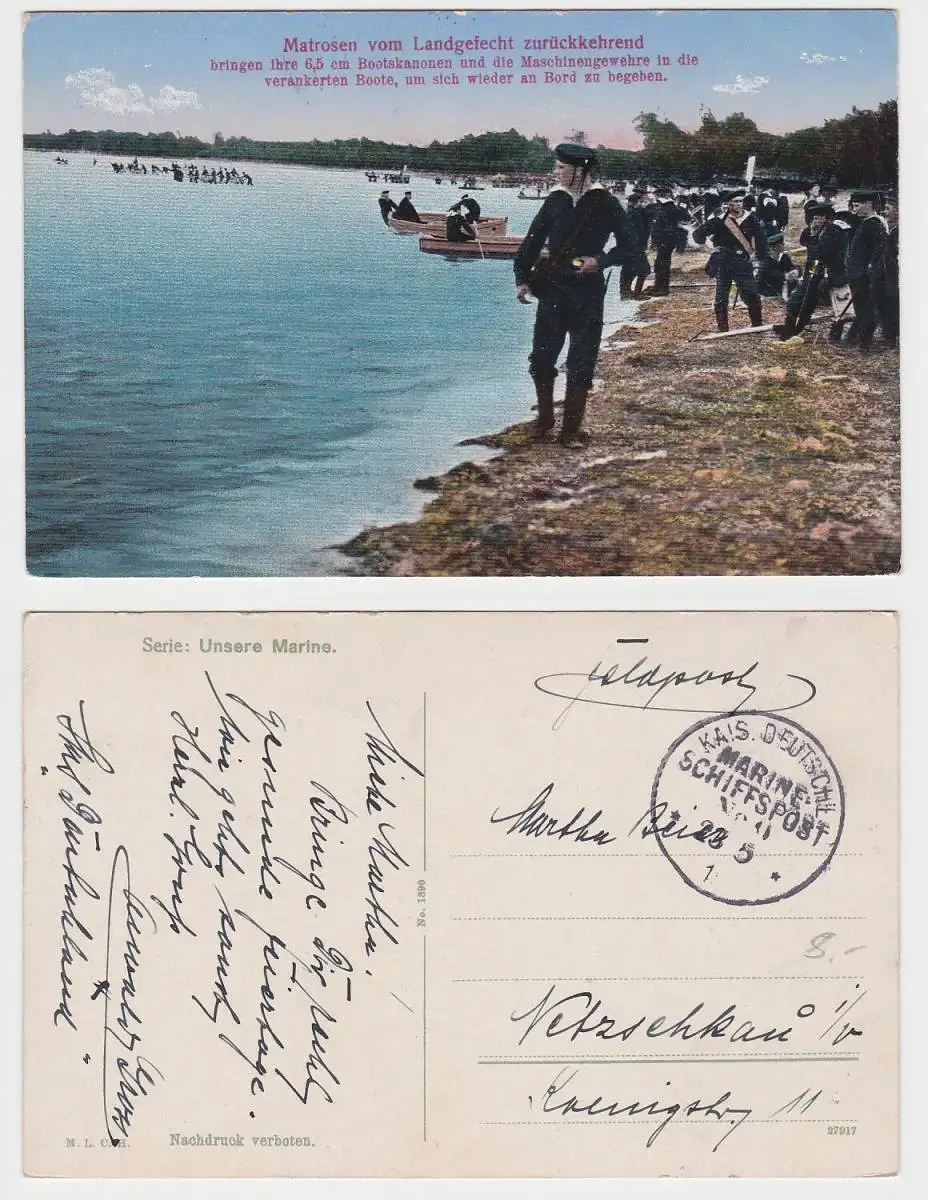 Matrosen vom Landgefecht zurückkehrend
bringen ihre 6,5 cm Bootskanonen und die Maschinengewehre in die
verankerten Boote, um sich wieder an Bord zu begeben.
Serie: Unsere Marine.
Feldpost
KAIS. DEUTSCHE
MARINE-
SCHIFFSPOST
No
23 5
Martha Beier
8.-
Netzschkau i/v
Koenigstr. 11
27917
No. 1890
Martha!
Bringe Dir
gesunde Feiertage.
Wie gehts
Herzl. Gruß
"
M. L. C. H.
Nachdruck verboten.